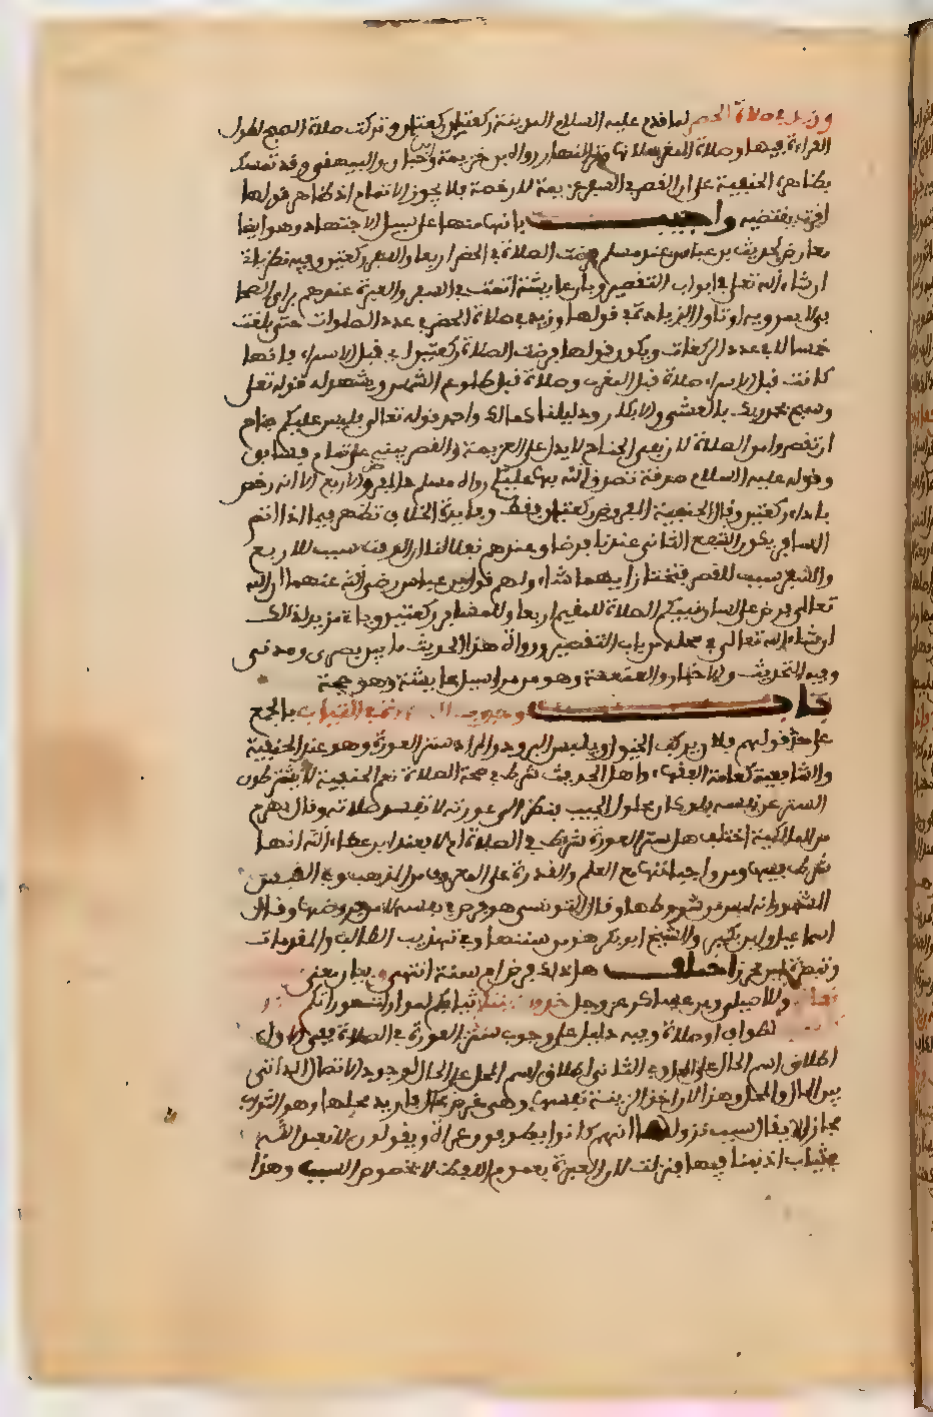 وزيد في صلاة الحضر لما قدم عليه السلام المدينة ركعتان ركعتان وتركت صلاة الصبح لطول
القراءة فيها وصلاة المغرب لانها وتر النهار رواه ابن خزيمة وابن حبان والبيهقي وقد تمسك
بظاهره الحنفية على ان القصر في السفر عزيمة لا رخصة فلا يجوز الاتمام اذ ظاهر قولها
اقرت يقتضيه واجيب بانها منها على سبيل الاجتهاد وهو ايضا
معارض بحديث ابن عباس عند مسلم فرضت الصلاة في الحضر اربعا وفي السفر ركعتين وفيه نظر ياتي
ان شاء الله تعلى في ابواب التقصير وبان عايشة اتمت في السفر والعبرة عندهم براي الصحابي
لا بمرويه او تاول الزيادة في قولها وزيد في صلاة الحضر في عدد الصلوات حتى بلغت
خمسا لا في عدد الركعات ويكون قولها فرضت الصلاة ركعتين اي قبل الاسراء فانها
كانت قبل الاسراء صلاة قبل المغرب وصلاة قبل طلوع الشمس ويشهد له قوله تعلى
وسبح بحمد ربك بالعشي والابكار ودليلنا كمالك واحمد قوله تعالى فليس عليكم جناح
ان تقصروا من الصلاة لان نفي الجناح لا يدل على العزيمة والقصر ينبئ عن تمام سابق
وقوله عليه السلام صدقة تصدق الله بها عليكم رواه مسلم فالمفروض الاربع الا انه رخص
باداء ركعتين وقال الحنفية المفروض ركعتان فقط وفايدة الخلاف تظهر فيما اذا اتم
المسافر يكون الشفع الثاني عندنا فرضا وعندهم نفلا لنا ان الوقت سبب للاربع
والسفر سبب للقصر فيختار ايهما شاء ولهم قول ابن عباس رضي الله عنهما ان الله
تعالى فرض على لسان نبيكم الصلاة للمقيم اربعا وللمسافر ركعتين وياتي مزيد لذلك
ان شاء الله تعالى في محله من باب التقصير ورواة هذا الحديث ما بين بصري ومدني
وفيه التحديث والاخبار والعنعنة وهو من مراسيل عايشة وهو حجة
باب وجوب الصلاة في الثياب بالجمع
على حد قولهم فلان يركب الخيول ويلبس البرود والمراد ستر العورة وهو عند الحنفية
والشافعية كعامة الفقهاء واهل الحديث شرط في صحة الصلاة نعم الحنفية لا يشترطون
الستر عن نفسه فلو كان محلول الجيب ينظر الى عورته لا تفسد صلاته وقال بهرام
من المالكية اختلف هل ستر العورة شرط في الصلاة ام لا فعند ابن عطاء الله انها
شرط فيها ومن واجباتها مع العلم والقدرة على المعروف من المذهب وفي القبس
المشهور انه ليس من شروطها وقال التونسي هو فرض في نفسه لا من فروضها وقال
اسماعيل وابن بكير والشيخ ابو بكر هو من سننها وفي تهذيب الطالب والمقدمات
وتبصرة ابن محرز اختلف هل ذلك فرض ام سنة انتهى وبيان معنى
قوله وللاصيلي وابن عساكر عز وجل خذوا زينتكم ثيابكم لمواراة عوراتكم
لطواف او صلاة وفيه دليل على وجوب ستر العورة في الصلاة ففي الاول
اطلاق اسم الحال على المحل وفي الثاني اطلاق اسم المحل على الحال لوجود الاتصال الذاتي
بين الحال والمحل وهذا لان اخذ الزينة نفسها وهي عرض محال فاريد محلها وهو الثوب
مجازا لا يقال سبب نزولها انهم كانوا يطوفون عراة ويقولون لا نعبد الله
في ثياب اذنبنا فيها فنزلت لان العبرة بعموم اللفظ لا بخصوص السبب وهذا